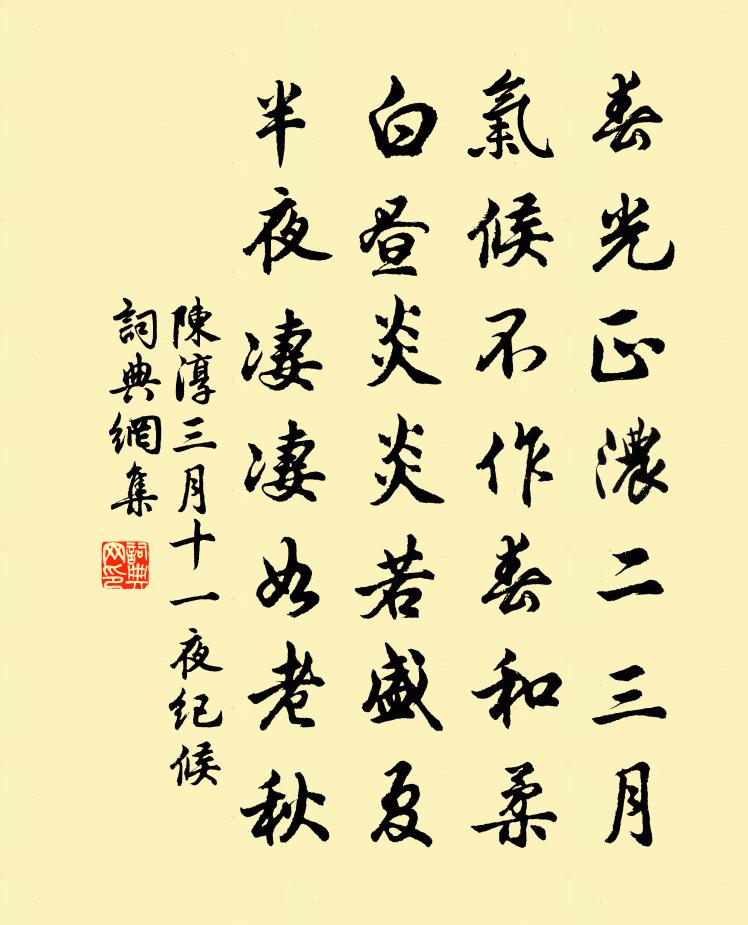 春光正濃二三月
氣候不作春和柔
白晝炎炎若盛夏
半夜凄凄如老秋
陳淳三月十一夜紀候
詞典網集
詞典网印